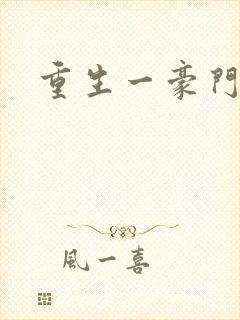 重生一豪門
風一喜